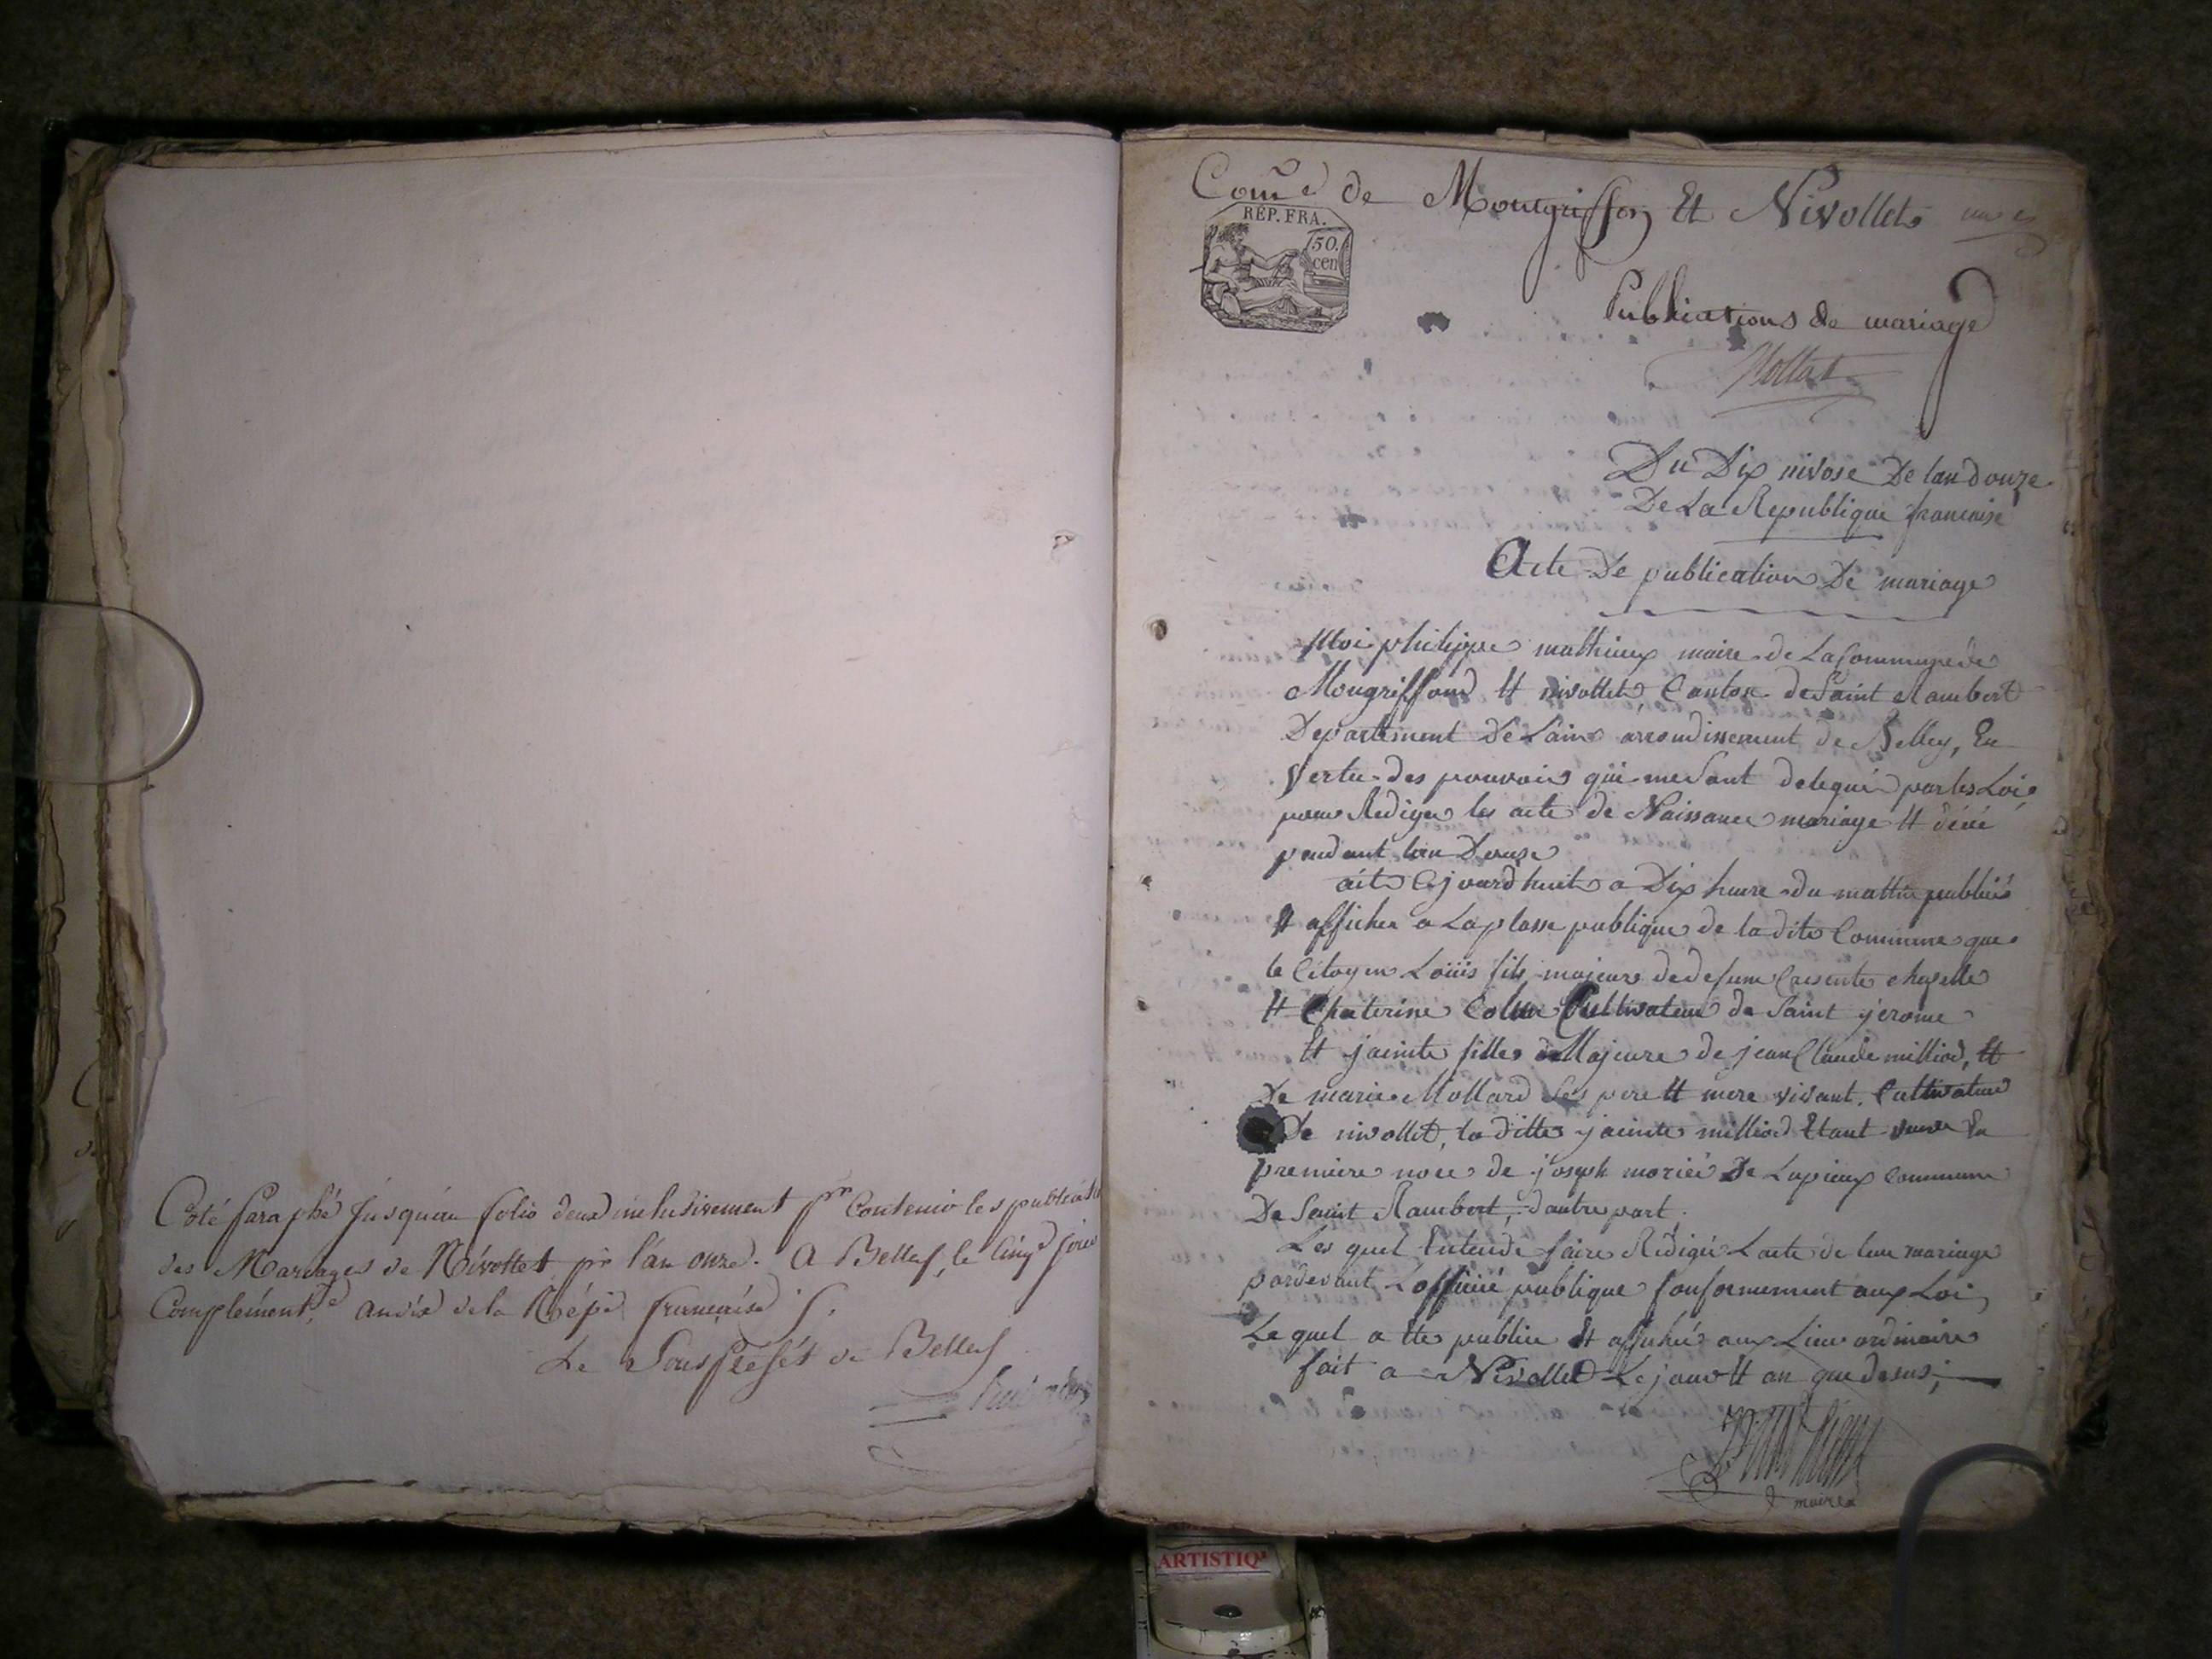 Coté paraphé jusqu'au folio deux inclusivement pr contenir les publicat
des Mariages de Nivollet pr l'an onze. A Belley, le cinqe jour
Complément.e an dix de la Répe française
Le Sous Préfét de Belley
Come de Montgriffon Et Nivollet
RÉP. FRA.
50.
cen
Publications de mariage
Du Dix nivose De lan douze
De La Republique francaise
Acte De publication De mariage
Moi philippe mathieux maire de La Commune de
Mongriffond Et nivollet Canton de Saint Rambert
Departement De Lain arrondissement de Belley, En
Vertu des pouvoir qui me sont delegué par les Loi
pour Rediger les acte de Naissance mariage Et décé
pendant lan Douze
ait ajourdhuit a Dix heure du mattin publiés
Et afficher a La plasse publique de la dite Commune que
le Citoyen Loüis fils majeur de defunt Chapelle
Et Chaterine Cultivateur de Saint jerome
Et jacinte fille Majeure de jean Claude milliod, Et
De marie Mollard Ses pere Et mere vivant. Cultivateur
De nivollet, la ditte jacinte milliod Etant En
premiere noce de joseph de Lupieux Commune
De Saint Rambert, dautre part.
Les quel Entende faire Rédigié Lacte de leur mariage
pardevant Lofficié publique Conformement aux Loi,
Le quel a Ete publié Et affiché aux Lieu ordinaire
fait a Nivollet Le jour Et an que desus;
maire
ARTISTIQ